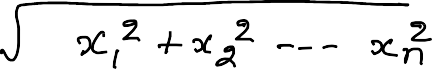 √(x₁² + x₂² --- xₙ²)